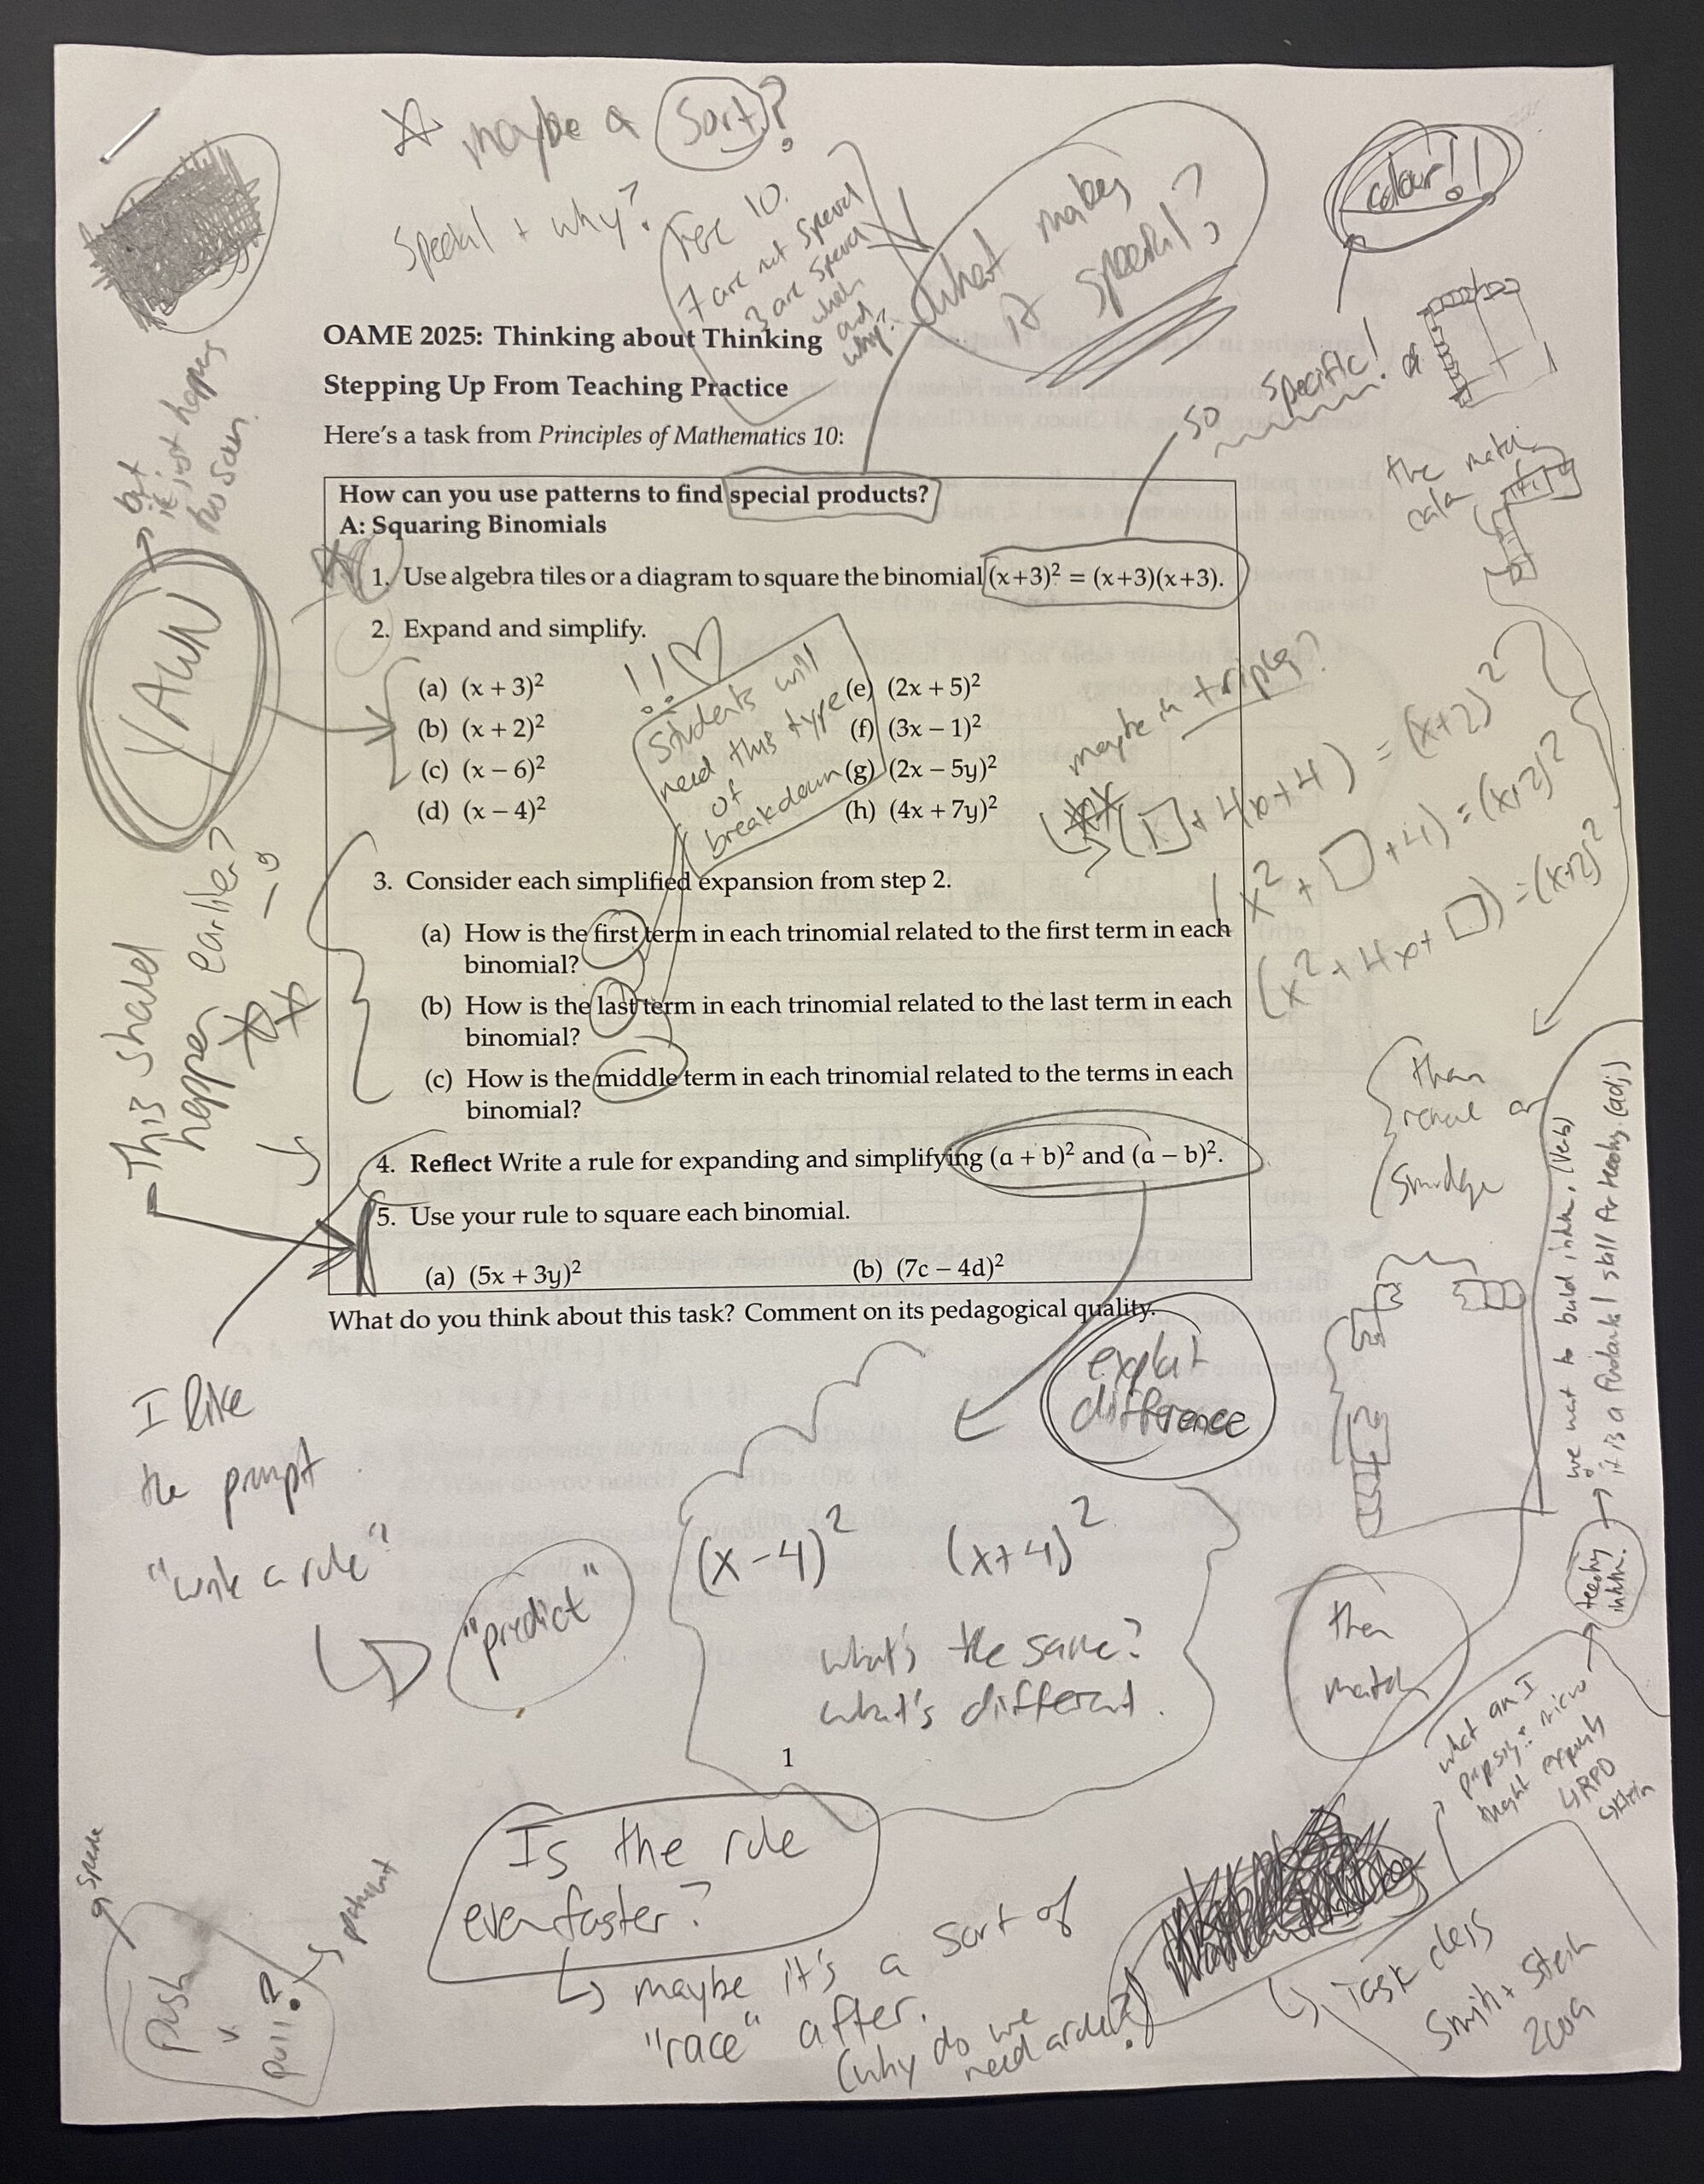 maybe a Sort?
special + why?
7 are not special
3 are special
which
and
why?
what makes
it special?
colour!!
OAME 2025: Thinking about Thinking
Stepping Up From Teaching Practice
Here's a task from Principles of Mathematics 10:
so specific!
the match
but
it just happens
too soon.
How can you use patterns to find special products?
A: Squaring Binomials
1. Use algebra tiles or a diagram to square the binomial (x+3)² = (x+3)(x+3).
2. Expand and simplify.
(a) (x + 3)²
(b) (x + 2)²
(c) (x – 6)²
(d) (x – 4)²
(e) (2x + 5)²
(f) (3x – 1)²
(g) (2x – 5y)²
(h) (4x + 7y)²
YAWN
!!
Students will
need this type
of
breakdown
maybe in triples?
+ 4x+4) = (x+2)²
(x² + □ +4) = (x+2)²
(x² + 4x + □) = (x+2)²
3. Consider each simplified expansion from step 2.
(a) How is the first term in each trinomial related to the first term in each
binomial?
(b) How is the last term in each trinomial related to the last term in each
binomial?
(c) How is the middle term in each trinomial related to the terms in each
binomial?
This should
happen earlier?
then
smudge
4. Reflect Write a rule for expanding and simplifying (a + b)² and (a – b)².
5. Use your rule to square each binomial.
(a) (5x + 3y)²
(b) (7c – 4d)²
What do you think about this task? Comment on its pedagogical quality.
explicit
difference
I like
the prompt
"write a rule"
"predict"
(x-4)² (x+4)²
what's the same?
what's different.
then
match
we want to build (verb)
it is a skill for teaching. (adj)
teaching
what am I
micro
thought experiments
1
Is the rule
even faster?
maybe it's a sort of
"race" after.
(why do we
need a rule?)
space
push
v.
pull?
Task
Smith + Stein
2009